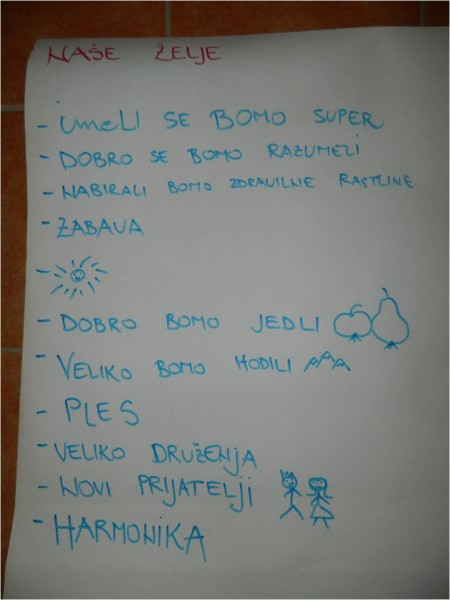 NAŠE ŽELJE
- imeLI SE BOMO SUPER
- DOBRO SE BOMO RAZUMELI
- NABIRALI BOMO ZDRAVILNE RASTLINE
- ZABAVA
-
- DOBRO BOMO JEDLI
- VELIKO BOMO HODILI
- PLES
- VELIKO DRUŽENJA
- NOVI PRIJATELJI
- HARMONIKA